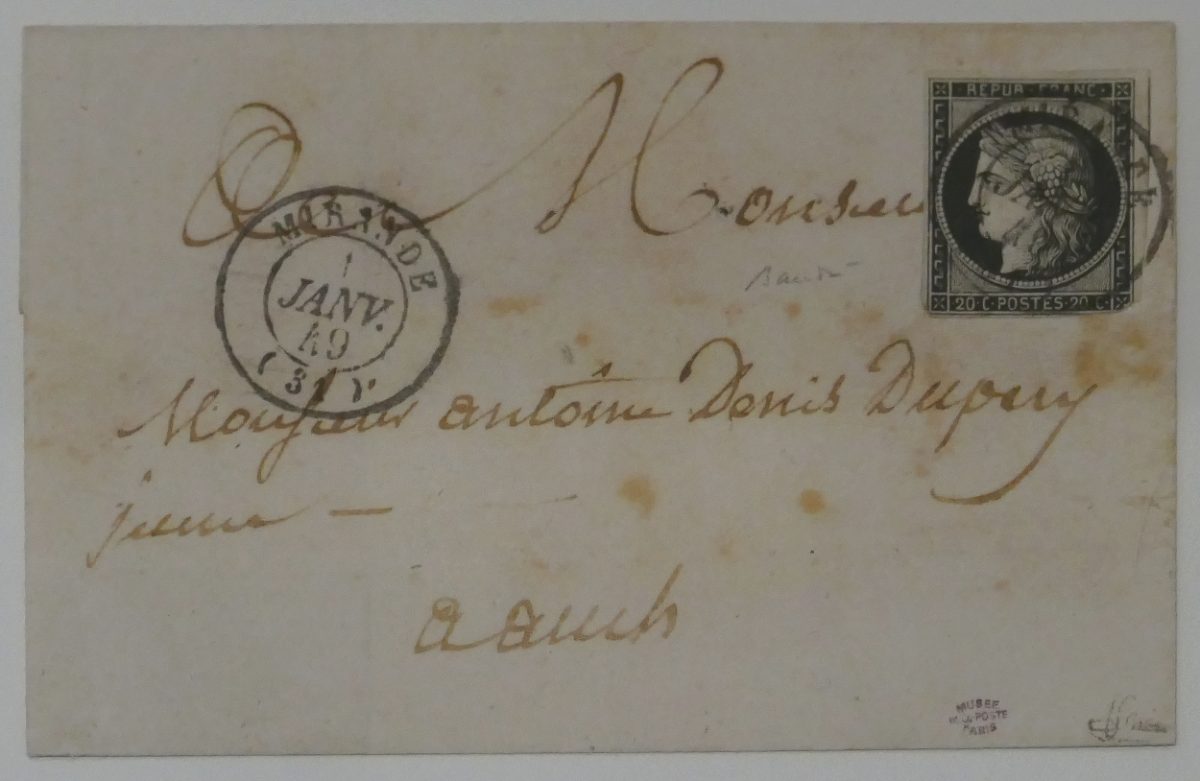 REPUB·FRANC·
20 C·POSTES·20 C·
A Monsieur
MIRANDE
1
JANV.
49
(31)
Monsieur antoine Denis Dupuy
jeune —
a auch
MUSEE
DE LA POSTE
PARIS